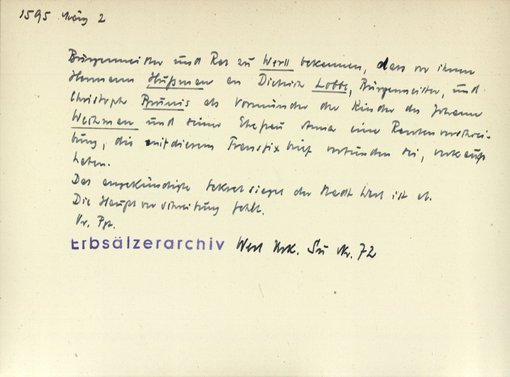 1595 März 2
Bürgermeister und Rat zu Werl bekennen, dass vor ihnen
Hermann Hußman an Dietrich Lobbe, Bürgermeister, und
Christoph Brunis als Vormünder der Kinder des Johann
und seiner Ehefrau Anna eine Rentenverschrei-
bung, die mit diesem Transfix brief verbunden sei, verkauft
haben.
Das angekündigte Sekret siegel der Stadt Werl ist ab.
Die Hauptverschreibung fehlt.
Or. Pgt.
Erbsälzerarchiv Werl Urk. Nr. 72